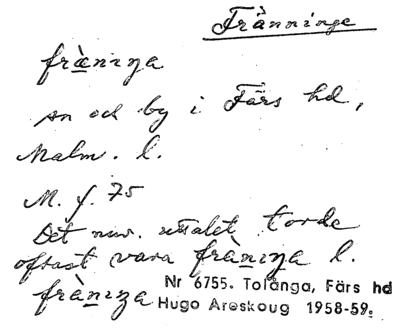 Fränninge
fräniŋa
sn och by i Färs hd,
Malm. l.
M. f. 75
Det nuv. uttalet torde
oftast vara fräniŋa l.
fräniŋa
Nr 6755. Tolånga, Färs hd
Hugo Areskoug 1958-59.